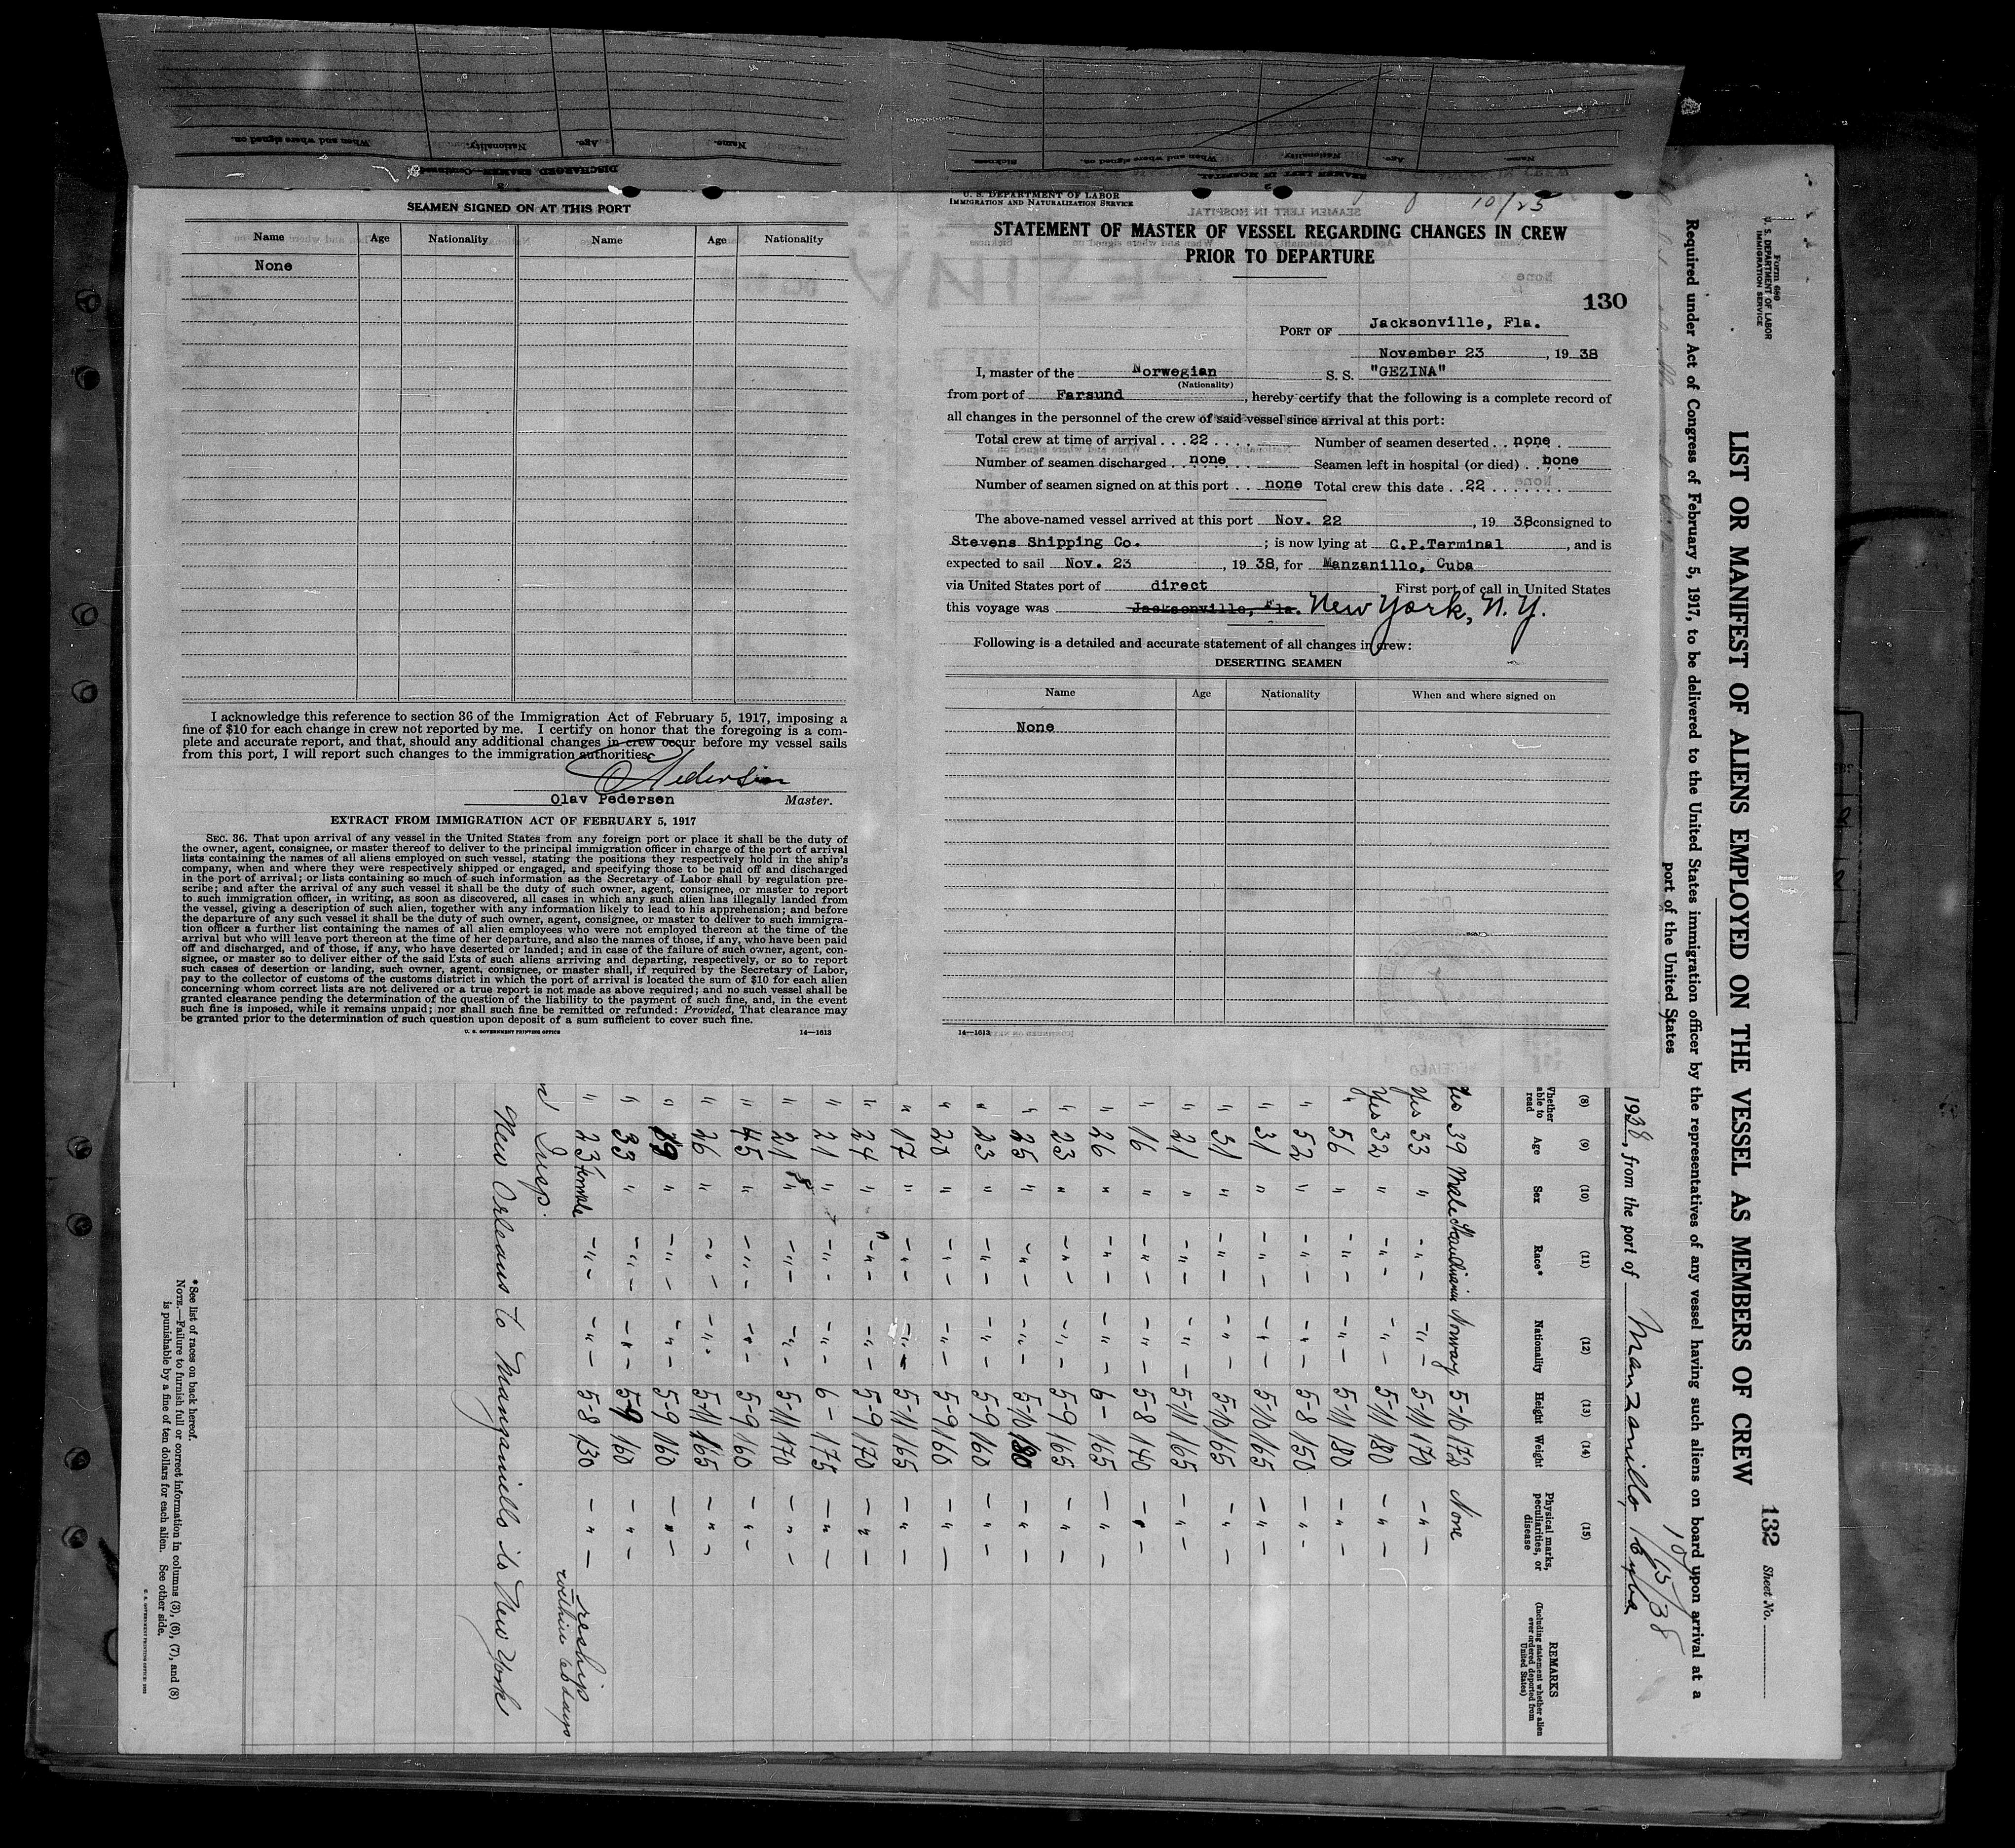 SEAMEN SIGNED ON AT THIS PORT
Name Age Nationality Name Age Nationality
None
I acknowledge this reference to section 36 of the Immigration Act of February 5, 1917, imposing a
fine of $10 for each change in crew not reported by me. I certify on honor that the foregoing is a com-
plete and accurate report, and that, should any additional changes in crew occur before my vessel sails
from this port, I will report such changes to the immigration authorities.
Pedersen
Olav Pedersen Master.
EXTRACT FROM IMMIGRATION ACT OF FEBRUARY 5, 1917
SEC. 36. That upon arrival of any vessel in the United States from any foreign port or place it shall be the duty of
the owner, agent, consignee, or master thereof to deliver to the principal immigration officer in charge of the port of arrival
lists containing the names of all aliens employed on such vessel, stating the positions they respectively hold in the ship's
company, when and where they were respectively shipped or engaged, and specifying those to be paid off and discharged
in the port of arrival; or lists containing so much of such information as the Secretary of Labor shall by regulation pre-
scribe; and after the arrival of any such vessel it shall be the duty of such owner, agent, consignee, or master to report
to such immigration officer, in writing, as soon as discovered, all cases in which any such alien has illegally landed from
the vessel, giving a description of such alien, together with any information likely to lead to his apprehension; and before
the departure of any such vessel it shall be the duty of such owner, agent, consignee, or master to deliver to such immigra-
tion officer a further list containing the names of all alien employees who were not employed thereon at the time of the
arrival but who will leave port thereon at the time of her departure, and also the names of those, if any, who have been paid
off and discharged, and of those, if any, who have deserted or landed; and in case of the failure of such owner, agent, con-
signee, or master so to deliver either of the said lists of such aliens arriving and departing, respectively, or so to report
such cases of desertion or landing, such owner, agent, consignee, or master shall, if required by the Secretary of Labor,
pay to the collector of customs of the customs district in which the port of arrival is located the sum of $10 for each alien
concerning whom correct lists are not delivered or a true report is not made as above required; and no such vessel shall be
granted clearance pending the determination of the question of the liability to the payment of such fine, and, in the event
such fine is imposed, while it remains unpaid; nor shall such fine be remitted or refunded: Provided, That clearance may
be granted prior to the determination of such question upon deposit of a sum sufficient to cover such fine.
U. S. GOVERNMENT PRINTING OFFICE 14—1613
U. S. DEPARTMENT OF LABOR
IMMIGRATION AND NATURALIZATION SERVICE
10/25
STATEMENT OF MASTER OF VESSEL REGARDING CHANGES IN CREW
PRIOR TO DEPARTURE
130
PORT OF Jacksonville, Fla.
November 23, 1938
I, master of the Norwegian S. S. "GEZINA"
(Nationality)
from port of Farsund, hereby certify that the following is a complete record of
all changes in the personnel of the crew of said vessel since arrival at this port:
Total crew at time of arrival . . . 22 . . . . Number of seamen deserted . . none
Number of seamen discharged . . none Seamen left in hospital (or died) . . none
Number of seamen signed on at this port . . none Total crew this date . . 22
The above-named vessel arrived at this port Nov. 22, 19 38, consigned to
Stevens Shipping Co. ; is now lying at C.P.Terminal, and is
expected to sail Nov. 23, 19 38, for Manzanillo, Cuba
via United States port of direct First port of call in United States
this voyage was Jacksonville, Fla. New York, N. Y.
Following is a detailed and accurate statement of all changes in crew:
DESERTING SEAMEN
Name Age Nationality When and where signed on
None
14—1613
DISCHARGED SEAMEN—Continued
Name. Age. Nationality. When and where signed on.
SEAMEN LEFT IN HOSPITAL
Name. Age. Nationality. When and where signed on. Sickness.
Form 680
U. S. DEPARTMENT OF LABOR
IMMIGRATION SERVICE
132 Sheet No.
LIST OR MANIFEST OF ALIENS EMPLOYED ON THE VESSEL AS MEMBERS OF CREW
10/15/38
Required under Act of Congress of February 5, 1917, to be delivered to the United States immigration officer by the representatives of any vessel having such aliens on board upon arrival at a
port of the United States
1938, from the port of Manzanillo, Cuba
(8) (9) (10) (11) (12) (13) (14) (15)
Whether able to read Age Sex Race* Nationality Height Weight Physical marks, peculiarities, or disease REMARKS (Including statement whether alien ever ordered deported from United States)
Yes 39 Male Scandinavian Norway 5-10 172 None
Yes 33 " -"- -"- 5-11 170 -"-
Yes 32 " -"- -"- 5-11 180 -"-
" 56 " -"- -"- 5-11 180 -"-
" 52 " -"- -"- 5-8 150 -"-
" 31 " -"- -"- 5-10 165 -"-
" 31 " -"- -"- 5-10 165 -"-
" 21 " -"- -"- 5-11 165 -"-
" 16 " -"- -"- 5-8 140 -"-
" 26 " -"- -"- 6- 165 -"-
" 23 " -"- -"- 5-9 165 -"-
" 25 " -"- -"- 5-10 180 -"-
" 23 " -"- -"- 5-9 160 -"-
" 20 " -"- -"- 5-9 160 -"-
" 17 " -"- -"- 5-11 165 -"-
" 24 " -"- -"- 5-9 170 -"-
" 21 " -"- -"- 6- 175 -"-
" 21 " -"- -"- 5-11 170 -"-
" 45 " -"- -"- 5-9 160 -"-
" 26 " -"- -"- 5-11 165 -"-
" 39 " -"- -"- 5-9 160 -"-
" 33 " -"- -"- 5-9 160 -"-
" 23 Female -"- -"- 5-8 130 -"- reship
within 60 days
Insp.
New Orleans to Manzanillo to New York
*See list of races on back hereof.
NOTE.—Failure to furnish full or correct information in columns (3), (6), (7), and (8)
is punishable by a fine of ten dollars for each alien. See other side.